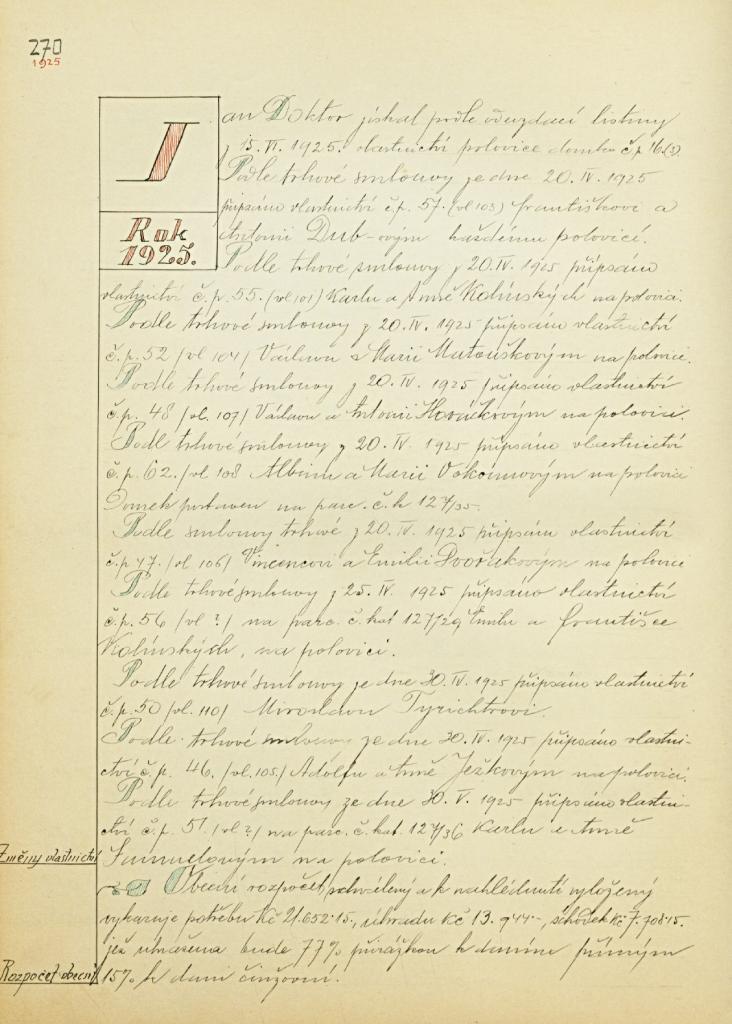 270
1925
Jan Doktor získal podle odevzdací listiny
z 15. VI. 1925. vlastnictví polovice domku č.p. 16
Podle trhové smlouvy ze dne 20. IV. 1925
připsáno vlastnictví č.p. 57. (vl 103) Františkovi a
Antonii Dub-ovým každému polovici.
Rok
1925.
Podle trhové smlouvy z 20. IV. 1925 připsáno
vlastnictví č.p. 55. (vl 101) Karlu a Anně Kolínských na polovici.
Podle trhové smlouvy z 20. IV. 1925 připsáno vlastnictví
č.p. 52 /vl 104/ Václavu a Marii Matouškovým na polovici.
Podle trhové smlouvy z 20. IV. 1925 připsáno vlastnictví
č.p. 48 /vl. 107/ Václavu a Antonii Horáčkovým na polovici.
Podl trhové smlouvy z 20. IV. 1925 připsáno vlastnictví
č.p. 62. /vl 108 Albínu a Marii Vokounovým na polovici
Domek postaven na parc. č. k 127/35.
Podle smlouvy trhové z 20. IV. 1925 připsáno vlastnictví
č.p 47. /vl 106/ Vincencovi a Emilii Dvořákovým na polovici
Podle trhové smlouvy z 25. IV. 1925 připsáno vlastnictví
č.p. 56 /vl ?/ na parc. č. kat 127/29 Emilu a Františce
Kolínských, na polovici.
Podle trhové smlouvy ze dne 30. IV. 1925 připsáno vlastnictví
č.p. 50 /vl. 110/ Miroslavu Tyrichtrovi.
Podle trhové smlouvy ze dne 30. IV. 1925 připsáno vlastni-
ctví č.p. 46. /vl. 105./ Adolfu a Anně Ježkovým na polovici.
Podle trhové smlouvy ze dne 30. V. 1925 připsáno vlastni-
ctví č.p. 51. /vl ?/ na parc. č. kat. 127/36 Karlu a Anně
Změny vlastnictví
Samuelovým na polovici.
Obecní rozpočet schválený a k nahlédnutí vyložený
vykazuje potřebu Kč 21.652.15, úhradu Kč 13.944.-, schodek Kč 7.708.15.
jež uhražena bude 77% přirážkou k daním přímým
Rozpočet obecní
15% k dani činžovní.